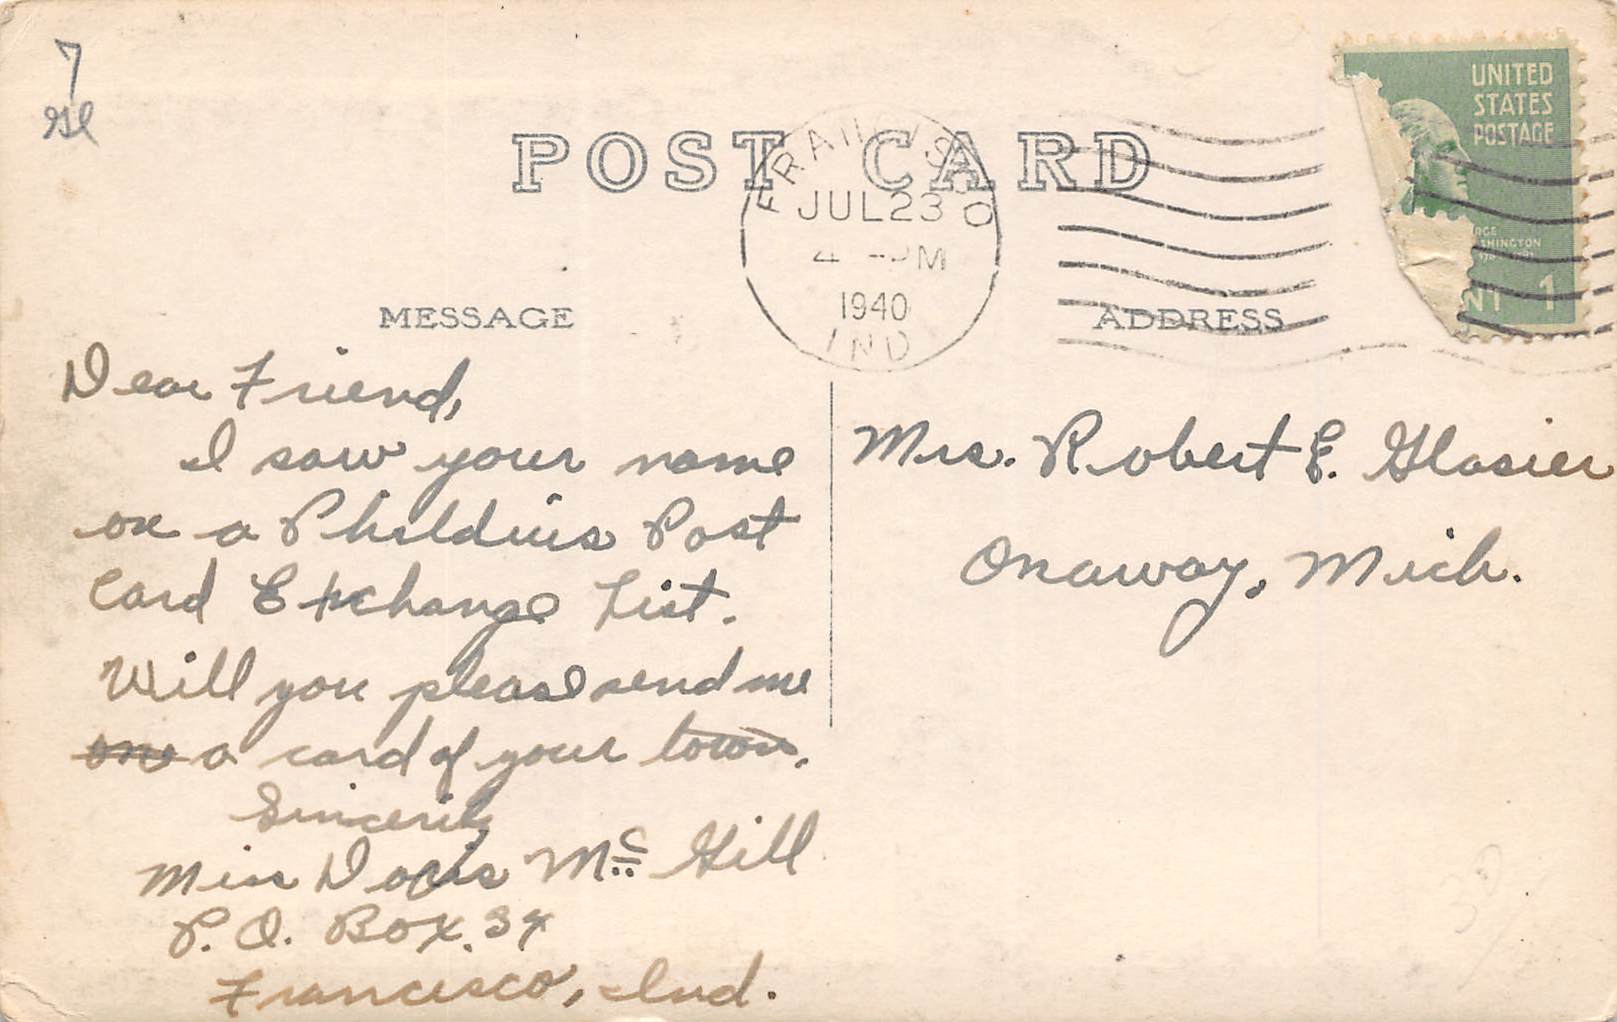 7
POST CARD
FRANCISCO
JUL 23
4 - PM
1940
IND
UNITED
STATES
POSTAGE
1
MESSAGE
ADDRESS
Dear Friend,
I saw your name
on a Post
Card Exchange List.
Will you please send me
a card of your town.
Sincerily
Miss Doris Mc Gill
P.O. Box. 34
Francisco, Ind.
Mrs. Robert E. Glasier
Onaway, Mich.